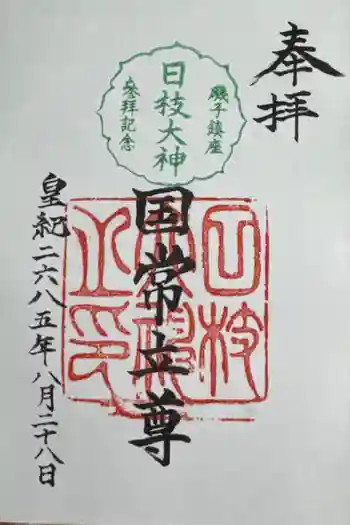 奉拝
銚子鎮座
日枝大神
参拝記念
国常立尊
皇紀二六八五年八月二十八日